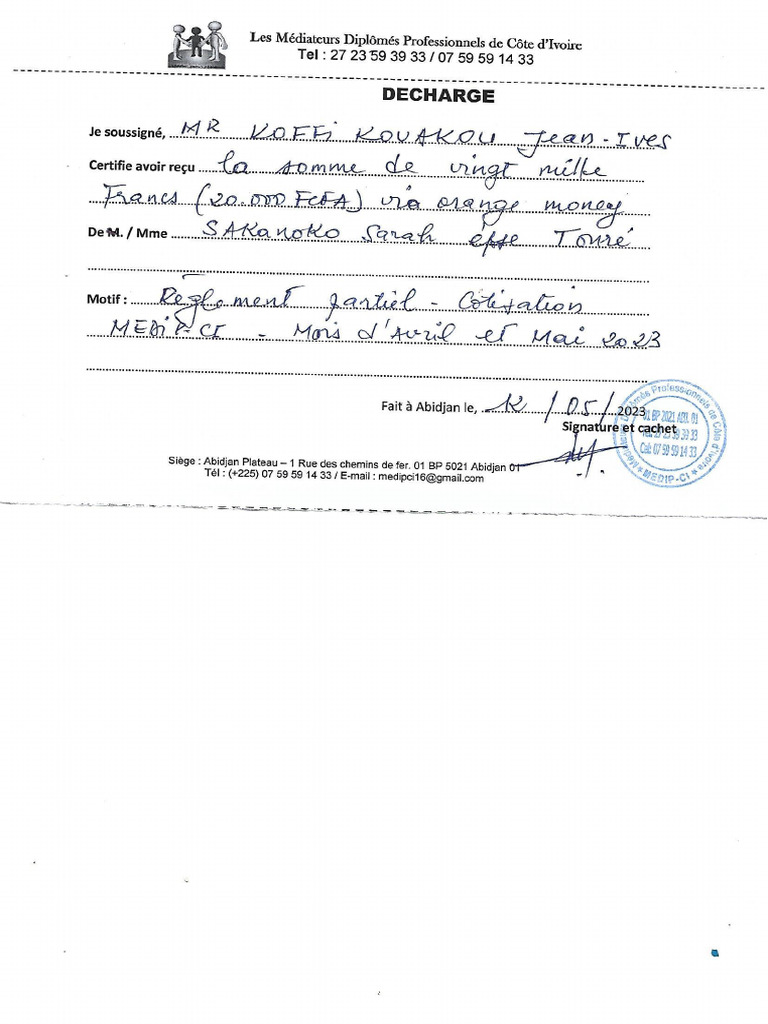 Les Médiateurs Diplômés Professionnels de Côte d'Ivoire
Tel : 27 23 59 39 33 / 07 59 59 14 33
DECHARGE
Je soussigné, MR KOFFi KOUAKOU Jean-Ives
Certifie avoir reçu la somme de vingt mille
Francs (20.000 FCFA) via orange money
De M. / Mme SAKANOKO Sarah épse Touré
Motif : Règlement partiel - Cotisation
MEDIP-CI - Mois d'Avril et Mai 2023
Fait à Abidjan le, 12 / 05 / 2023
Signature et cachet
Siège : Abidjan Plateau – 1 Rue des chemins de fer. 01 BP 5021 Abidjan 01
Tél : (+225) 07 59 59 14 33 / E-mail : medipci16@gmail.com
Diplômés Professionnels de Côte d'Ivoire
01 BP 2021 ABJ. 01
27 23 59 39 33
Cel: 07 59 59 14 33
MEDIP-CI